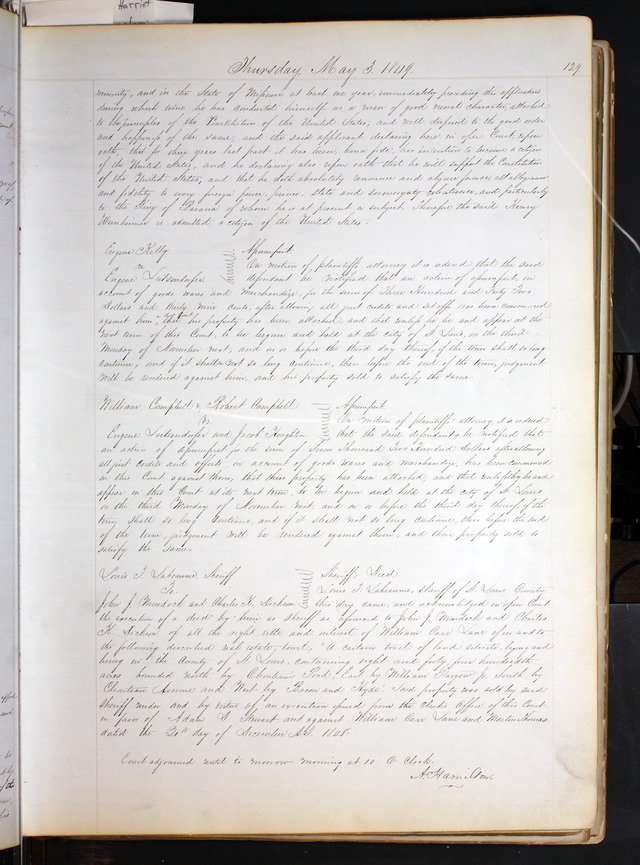 Harriet
Thursday, May 3. 1849.
129
minority, and in the State of Missouri at least one year, immediately preceding this application
during which time he has conducted himself as a man of good moral character, attached
to the principles of the Constitution of the United States, and well disposed to the good order
and happiness of the same; and the said applicant declaring here in open Court, upon
oath, that for three years last past it has been, bona fide, his intention to become a citizen
of the United States, and he declaring also upon oath that he will support the Constitution
of the United States, and that he doth absolutely renounce and abjure forever all allegiance
and fidelity to every foreign power, prince, state and sovereignty whatsoever, and particularly
to the King of Bavaria of whom he is at present a subject. Therefore the said Henry
is admitted a citizen of the United States.
Eugene Kelly
vs
Assumpsit.
On motion of plaintiffs attorney it is ordered that the said
Eugene Leitensdorfer
defendant be notified that an action of assumpsit on
account of goods wares and merchandize, for the sum of Three Hundred and Sixty Two
Dollars and thirty nine cents, after allowing all just credits and setoffs has been commenced
against him, that his property has been attached, and that unless he be and appear at the
next term of this Court, to be begun and held at the city of St Louis, on the third
Monday of November next, and on or before the third day thereof if the term shall so long
continue, and if it shall not so long continue, then before the end of the term, judgment
will be rendered against him, and his property sold to satisfy the same.
William Campbell & Robert Campbell
vs
Assumpsit.
On motion of plaintiffs attorney it is ordered
Eugene Leitensdorfer and Jacob Houghton
that the said defendants be notified that
an action of assumpsit for the sum of Thousand Two Hundred dollars after allowing
all just credits and offsets on account of goods wares and merchandize, has been commenced
in this Court against them, that their property has been attached, and that unless they be and
appear in this Court at its next term, to be begun and held at the city of St Louis
on the third Monday of November next, and on or before the third day thereof if the
term shall so long continue, and if it shall not so long continue, then before the end
of the term, judgment will be rendered against them, and their property sold to
satisfy the same.
Louis T. Labeaume, Sheriff
To
Sheriffs Deed.
Louis T. Labeaume, sheriff of St Louis County
John J. Murdock and Charles K. Dickson
this day came, and acknowledged in open Court
the execution of a deed by him as sheriff as aforesaid to John J. Murdock and Charles
K. Dickson of all the right title and interest of William Carr Lane of in and to
the following described real estate, to wit, "A certain tract of land situate, lying and
being in the County of St Louis, containing eight and forty four hundredths
acres bounded north by Chouteaus Pond, East by William South by
Chouteau Avenue and West by and Hyde. Said property was sold by said
Sheriff under and by virtue of an execution issued from the Clerks Office of this Court
in favor of Adam D. Stewart and against William Carr Lane and Martin Thomas
dated the 20th day of December A.D. 1848.
Court adjourned until to morrow morning at 10 O Clock.
A. Hamilton.